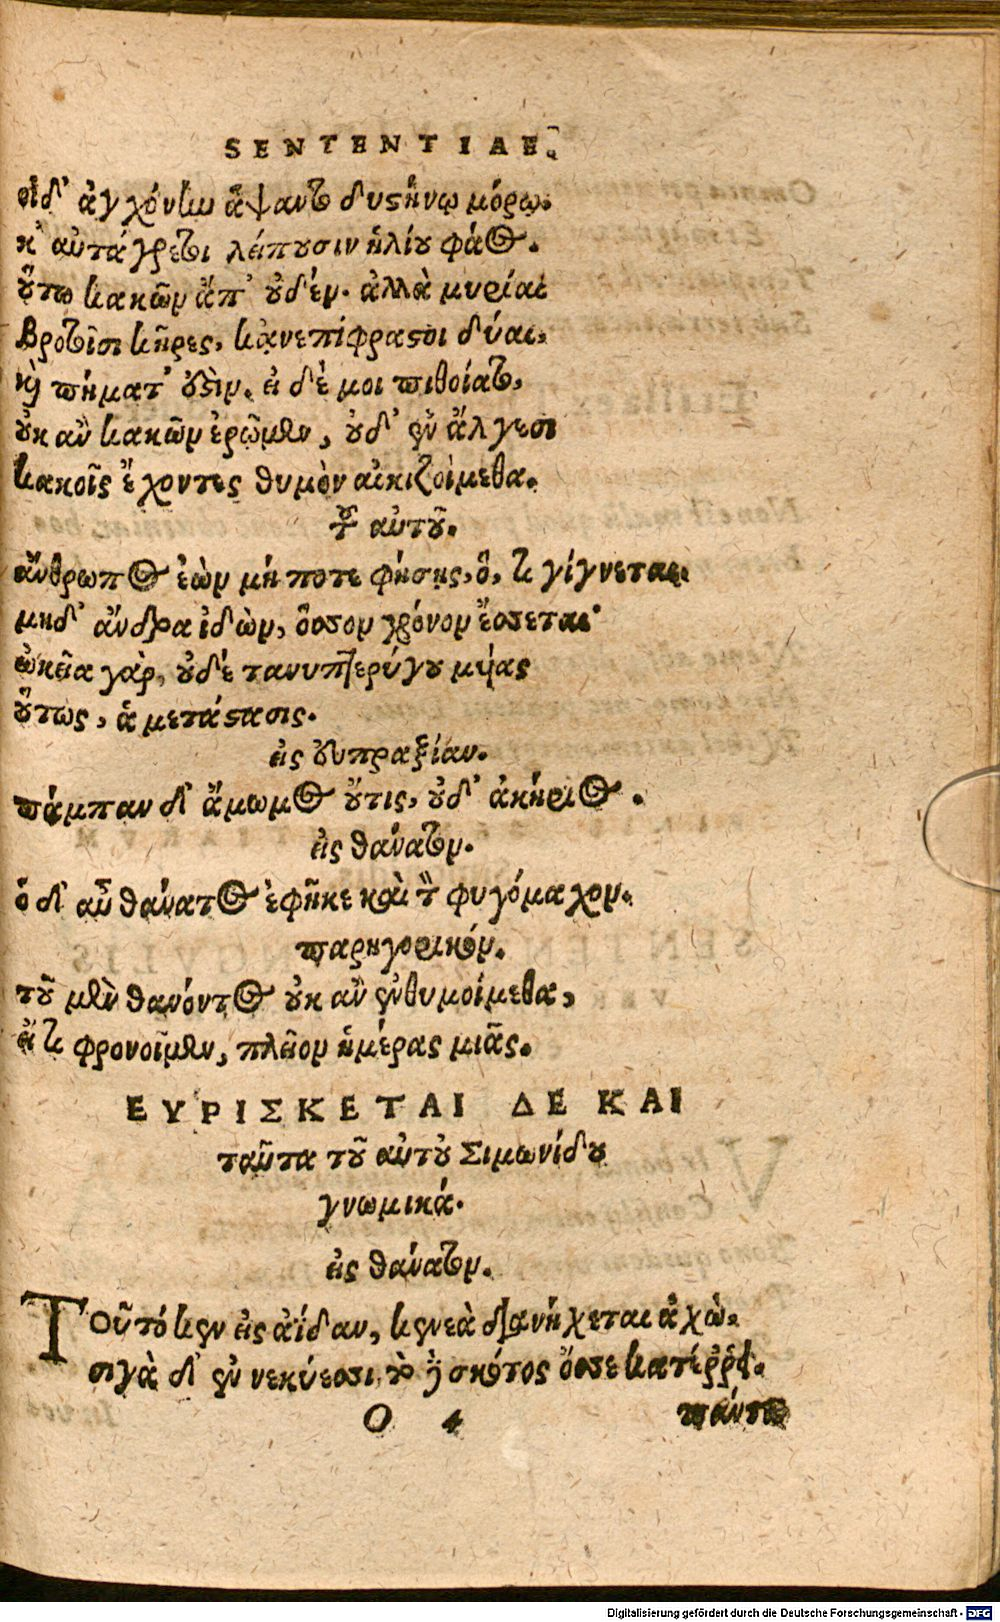 SENTENTIAE.
οἱ δ' ἀγχόνην ἅψαντο δυστήνῳ μόρῳ.
κ' αὐτάγρετοι λείπουσιν ἡλίου φάος.
οὕτω κακῶν ἄπ' οὐδέν. ἀλλὰ μυρίαι
Βροτοῖσι κῆρες, κἀνεπίφραστοι δύαι,
καὶ πήματ' ἐστὶν. εἰ δέ μοι πιθοίατο,
οὐκ ἂν κακῶν ἐρῷμεν, οὐδ' ἐν ἄλγεσι
κακοῖς ἔχοντες θυμὸν αἰκιζοίμεθα.
τοῦ αὐτοῦ.
ἄνθρωπος ἐὼν μή ποτε φήσῃς, ὅ, τι γίγνεται.
μηδ' ἄνδρα ἰδὼν, ὅσσον χρόνον ἔσσεται·
ὠκεῖα γὰρ, οὐδὲ τανυπτερύγου μυίας
οὕτως, ἁ μετάστασις.
εἰς εὐπραξίαν.
πάμπαν δ' ἄμωμος οὔτις, οὐδ' ἀκήριος.
εἰς θάνατον.
ὁ δ' αὖ θάνατος ἐφῆκε καὶ τὸν φυγόμαχον.
παρηγορικόν.
τοῦ μὲν θανόντος οὐκ ἂν ἐνθυμοίμεθα,
εἴ τι φρονοῖμεν, πλεῖον ἡμέρας μιᾶς.
ΕΥΡΙΣΚΕΤΑΙ ΔΕ ΚΑΙ
ταῦτα τοῦ αὐτοῦ Σιμωνίδου
γνωμικά.
εἰς θάνατον.
Τοῦτό κεν εἰς ἀΐδαν, κενεὰ διανήχεται ἀχὼ.
σιγὰ δ' ἐν νεκύεσσι, τὸ ἢ σκότος ὄσσε κατέρρει.
O 4
πάντα